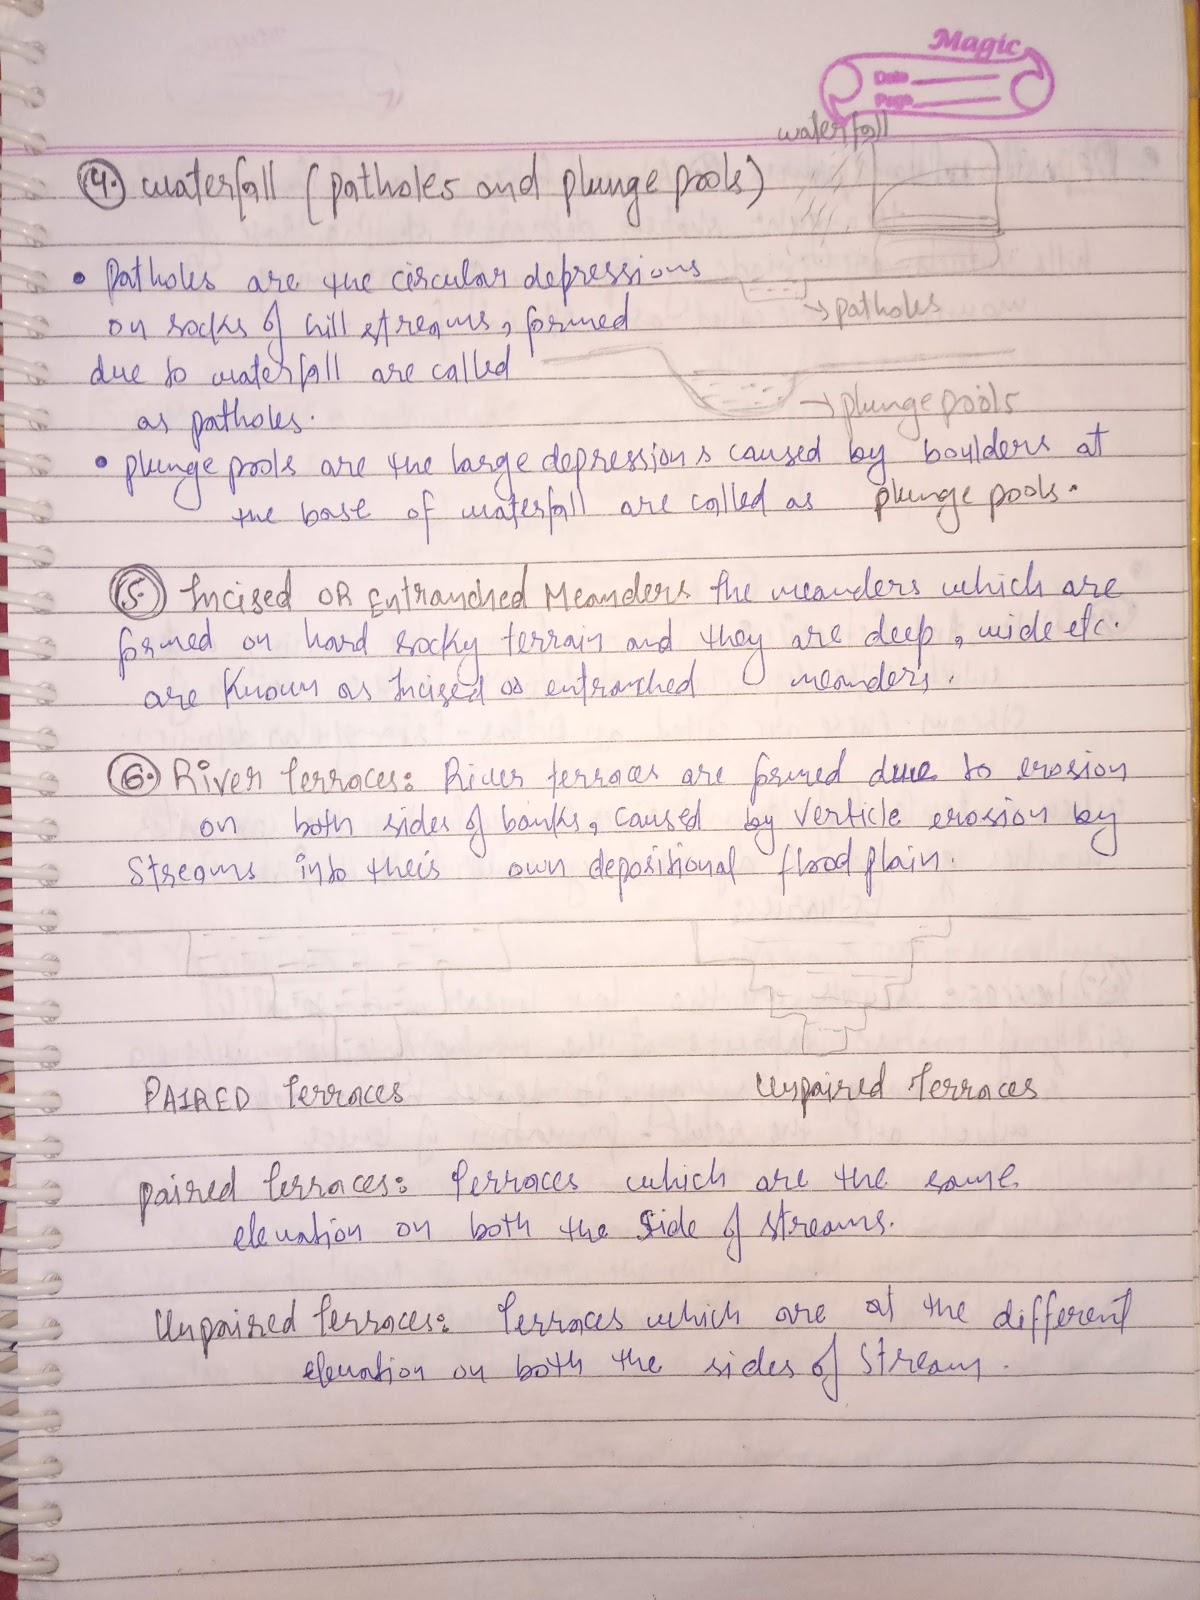 Magic
Date
Page
waterfall
4. waterfall (patholes and plunge pools)
• Patholes are the circular depressions
on rocks of hill streams, formed
→ patholes
due to waterfall are called
→ plunge pools
as patholes.
• plunge pools are the large depressions caused by boulders at
the base of waterfall are called as plunge pools.
5. Incised OR Entranched Meanders the meanders which are
formed on hard rocky terrain and they are deep, wide etc.
are Known as Incised or entranched meanders.
6. River terraces: River terraces are formed due to erosion
on both sides of banks, caused by verticle erosion by
streams into their own depositional flood plain.
PAIRED terraces
Unpaired terraces
paired terraces: terraces which are the same
elevation on both the side of streams.
Unpaired terraces: terraces which are at the different
elevation on both the sides of stream.